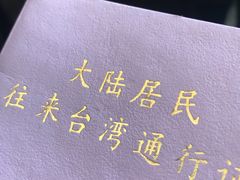 大陆居民
往来台湾通行证